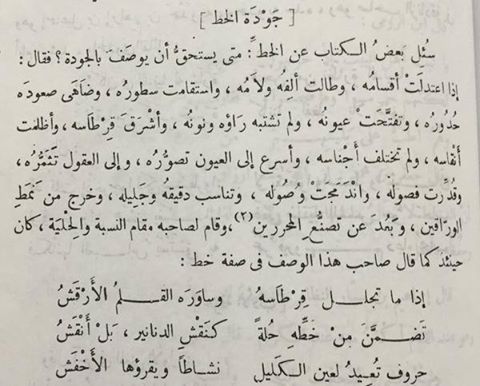 [ جَوْدَة الخط ]
سُئل بعضُ الكتاب عن الخطّ : متى يستحقُّ أن يوصَفَ بالجودة ؟ فقال :
إذا اعتدلَتْ أقسامُه ، وطالت ألفِهُ ولاَمُه ، واستقامت سطورُه ، وضَاهَى صعودَه
حُدُورُه ، وتفتَّحَتْ عيونُه ، ولم تشتبه رَاؤه ونونُه ، وأشرَقَ قِرْطَاسه ، وأظلمَت
أنقاسه ، ولم تختلف أجْناسه ، وأسرع إلى العيون تصوّرُه ، وإلى العقول تثمّرُه ،
وقُدِّرت فصولُه ، واندَمَجتْ وُصُولُه ، وتناسب دقيقُه وجَلِيلُه ، وخرج من نمَطِ
الورّاقين ، وبَعُدَ عن تصنُّع المحررين (٢) ، وقام لصاحبه مقام النسبة والحِلْيَة ، كان
حينئذ كما قال صاحب هذا الوصف فى صفة خط :
إذا ما تجلل قِرْطَاسهُ وساوَرَه القلمُ الأرْقَشُ
تضمَّنَ مِنْ خَطِّهِ حُلةً كنَقْشِ الدنانير ، بَلْ أنْقَشُ
حروف تُعِيدُ لعين الكَلِيلِ نشاطاً ويقرؤها الأخْفَش